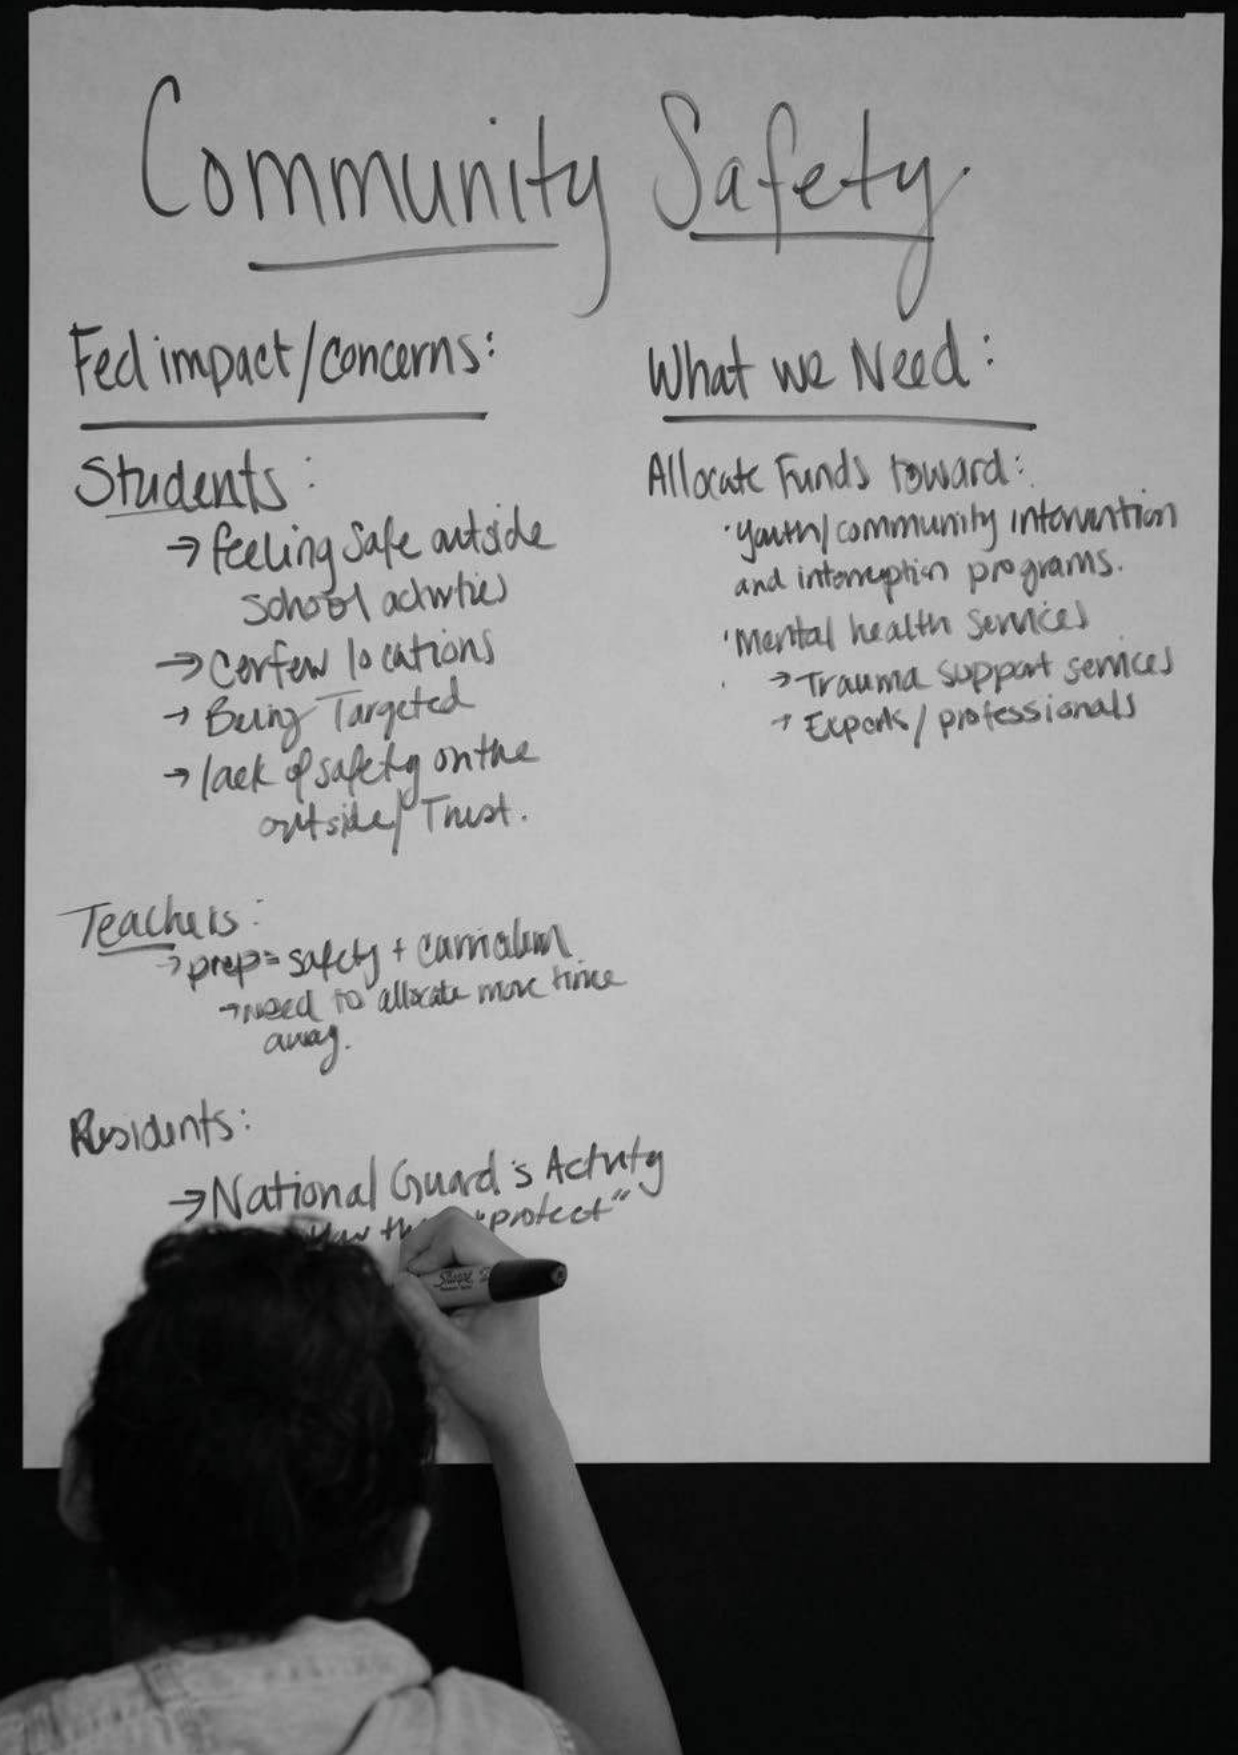 Community Safety.
Fed impact/concerns:
Students:
→ feeling safe outside
school activities
→ Cerfew locations
→ Being Targeted
→ lack of safety on the
outside/ Trust.
Teachers:
→ prep = safety + curriculum
→ need to allocate more time
away.
Residents:
→ National Guard's Activity
"protect"
What we Need:
Allocate Funds toward:
· Youth/community intervention
and interruption programs.
· Mental health services
→ Trauma support services
→ Experts/professionals
Sharpie